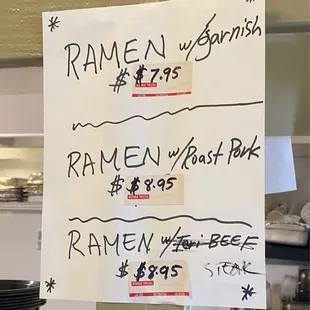 RAMEN w/garnish
$ $7.95
RAMEN w/Roast Pork
$ $8.95
RAMEN w/Teri BEEF
STEAK
$ $8.95